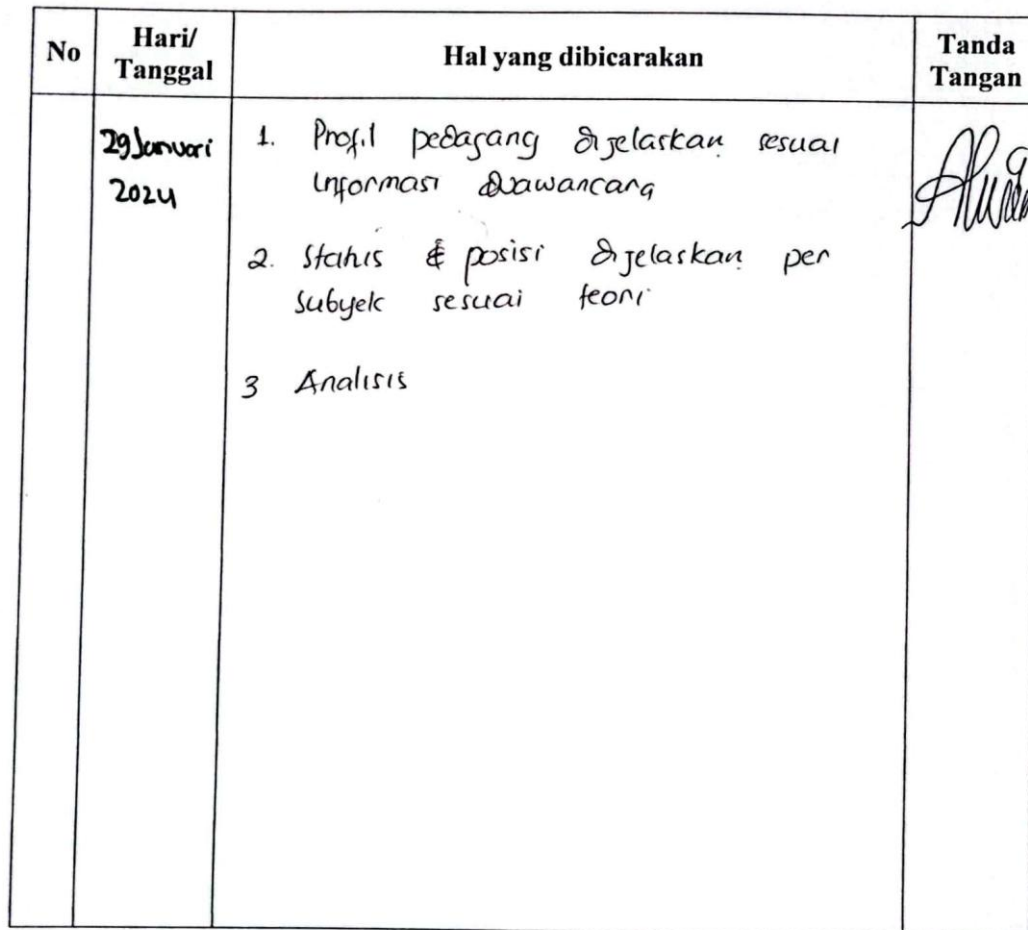 No
Hari/
Tanggal
Hal yang dibicarakan
Tanda
Tangan
29 Januari
2024
1. Profil pedagang dijelaskan sesuai
informasi diwawancara
2. Status & posisi dijelaskan per
subyek sesuai teori
3 Analisis